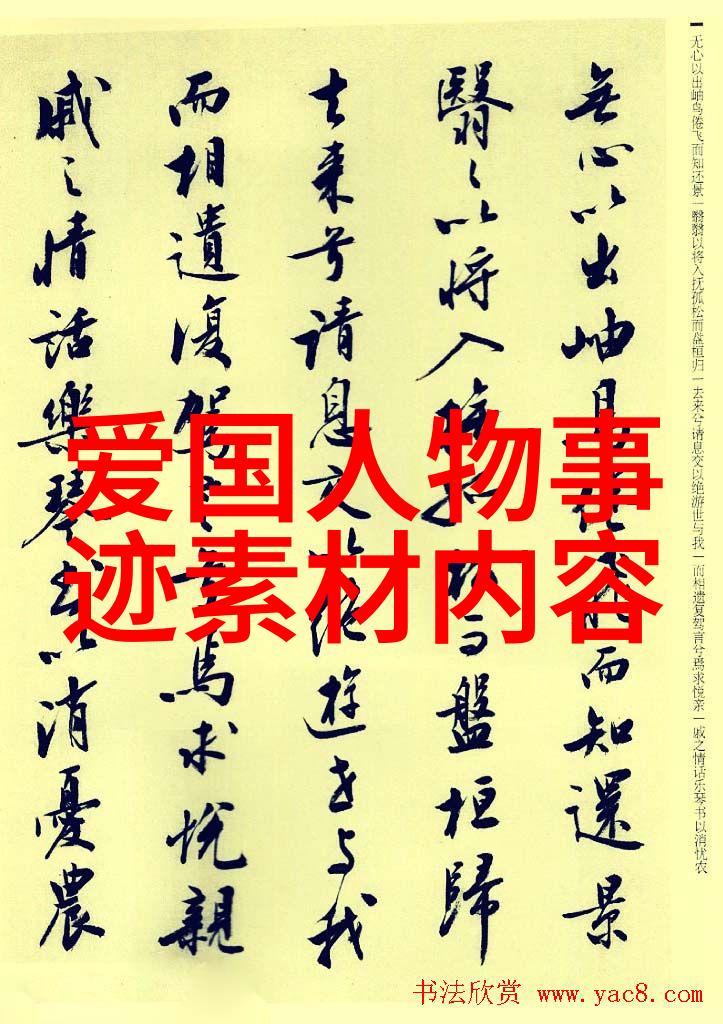 爱国人物事
迹素材内容
无心以出岫鸟倦飞而知还景｜翳翳以将入抚孤松而盘桓归｜去来兮请息交以绝游世与我｜而相遗复驾言兮焉求悦亲｜戚之情话乐琴书以消忧农
無心以出岫鳥倦飛而知還景
翳翳以将入撫孤松而盤桓歸
去来兮请息交以绝遊世与我
而相遺復駕言兮焉求悦親
戚之情話樂琴书以消憂農
书法欣赏 www.yac8.com